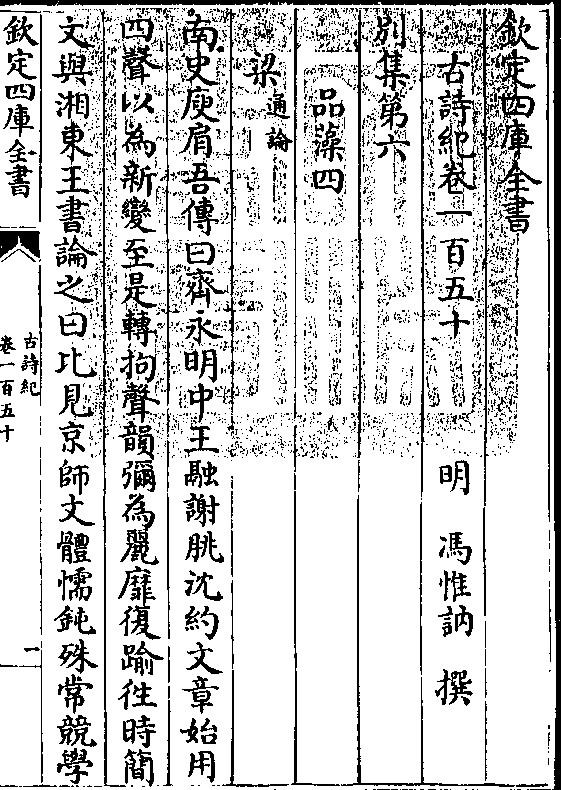 欽定四庫全書
古詩紀卷一百五十
明 馮惟訥 撰
別集第六
品藻四
梁通論
南史庾肩吾傳曰齊永明中王融謝朓沈約文章始用
四聲以為新變至是轉拘聲韻彌為麗靡復踰往時簡
文與湘東王書論之曰比見京師文體懦鈍殊常競學
欽定四庫全書
古詩紀
卷一百五十
一